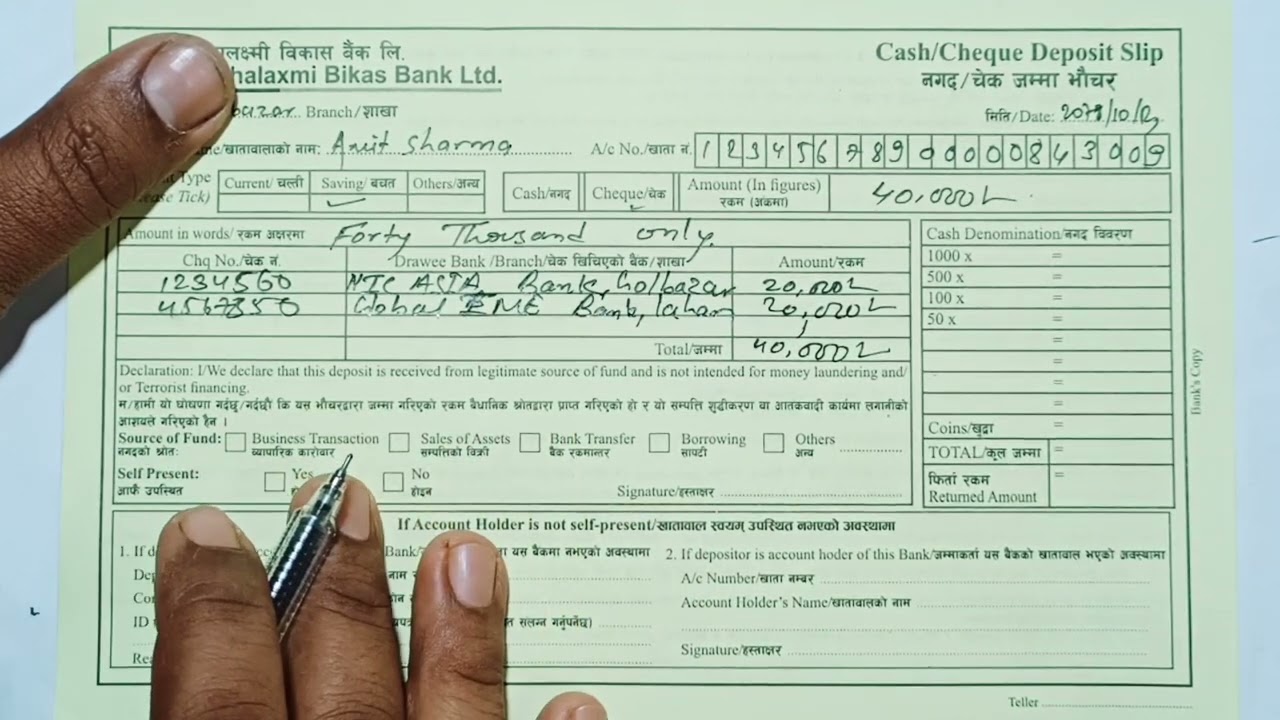 लक्ष्मी विकास बैंक लि. Cash/Cheque Deposit Slip
halaxmi Bikas Bank Ltd. नगद/चेक जम्मा भौचर
bazar Branch/शाखा मिति/Date:
me/खातावालाको नाम: Amit Sharma A/c No./खाता नं. 1 2 3 4 5 6 7 8 9 0 0 0 0 0 8 4 3 0 0 9
Type Current/चल्ती Saving/बचत Others/अन्य Cash/नगद Cheque/चेक Amount (In figures) 40,000/-
Tick) रकम (अंकमा)
Amount in words/रकम अक्षरमा Forty Thousand only. Cash Denomination/नगद विवरण
Chq No./चेक नं. Drawee Bank /Branch/चेक खिचिएको बैंक/शाखा Amount/रकम 1000 x =
1234560 NIC ASIA Bank, Golbazar 20,000/- 500 x =
4567850 Global IME Bank, Lahan 20,000/- 100 x =
50 x =
Total/जम्मा 40,000/- =
Declaration: I/We declare that this deposit is received from legitimate source of fund and is not intended for money laundering and/ =
or Terrorist financing. =
म/हामी यो घोषणा गर्दछु/गर्दछौं कि यस भौचरद्वारा जम्मा गरिएको रकम बैधानिक श्रोतद्वारा प्राप्त गरिएको हो र यो सम्पत्ति शुद्धीकरण वा आतंकवादी कार्यमा लगानीको =
आशयले गरिएको हैन । Coins/खुद्रा =
Source of Fund: Business Transaction Sales of Assets Bank Transfer Borrowing Others TOTAL/कूल जम्मा =
नगदको श्रोत: व्यापारिक कारोबार सम्पत्तिको विक्री बैंक रकमान्तर सापटी अन्य
Self Present: Yes No फिर्ता रकम =
आफै उपस्थित होइन Signature/हस्ताक्षर Returned Amount
Bank's Copy
If Account Holder is not self-present/खातावाल स्वयम् उपस्थित नभएको अवस्थामा
1. If d Bank/ यस बैंकमा नभएको अवस्थामा 2. If depositor is account hoder of this Bank/जम्माकर्ता यस बैंकको खातावाल भएको अवस्थामा
Dep नाम A/c Number/खाता नम्बर
Con Account Holder's Name/खातावालको नाम
ID संलग्न गर्नुपर्नेछ)
Rea Signature/हस्ताक्षर
Teller